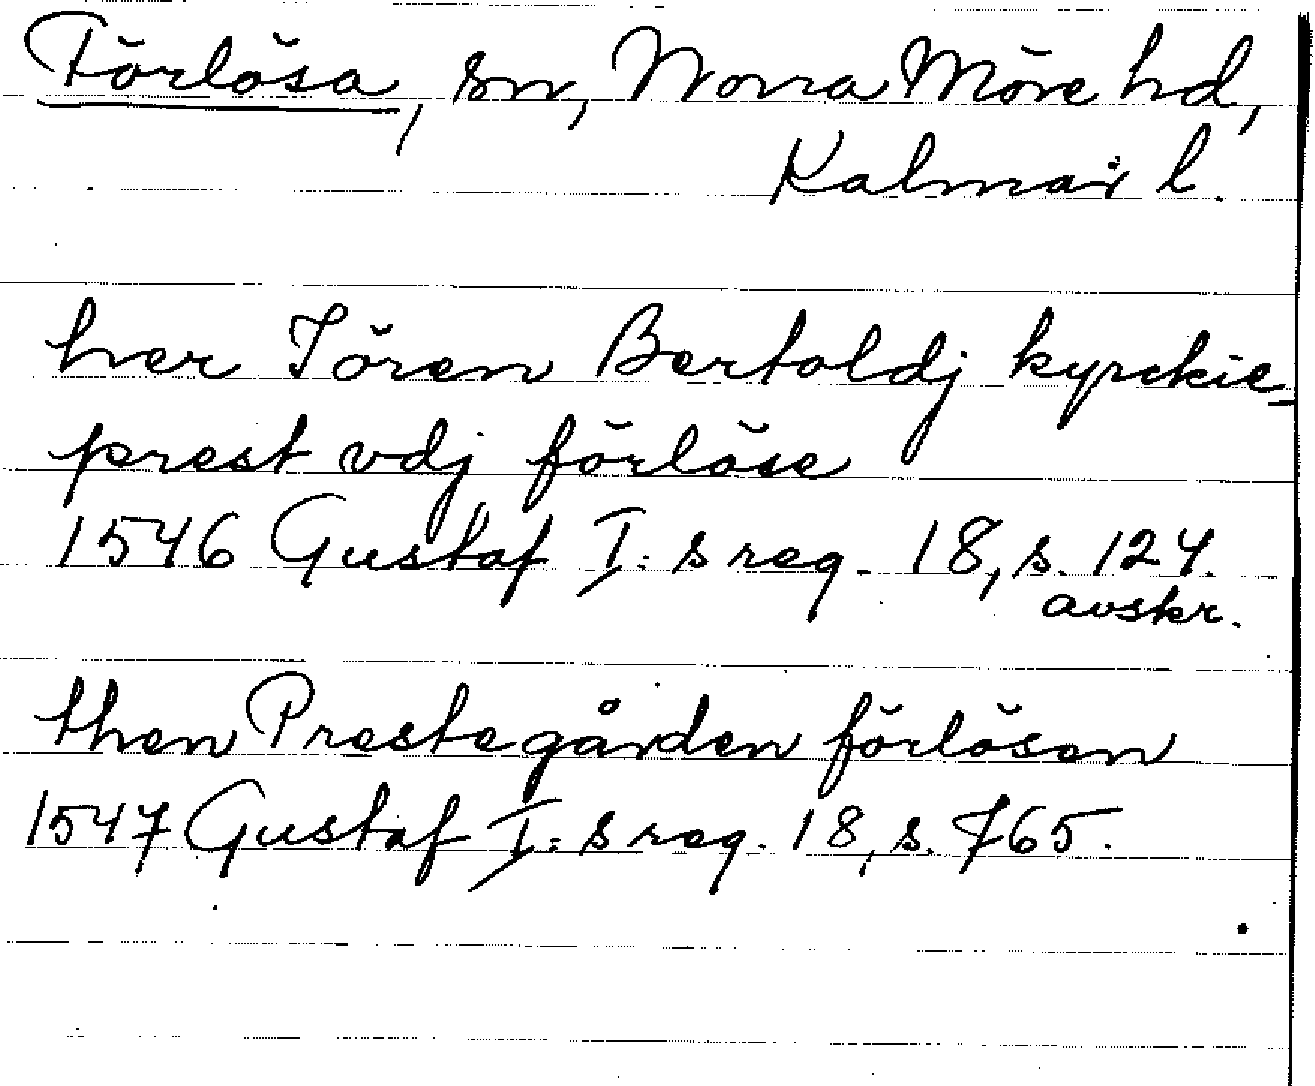 Förlösa, sn, Norra Möre hd,
Kalmar l.
her Jören Bertoldj kyrckie=
prest vdj förlöse
1546 Gustaf I:s reg. 18, s. 124.
avskr.
then Prestegården förlösen
1547 Gustaf I:s reg. 18, s. 765.